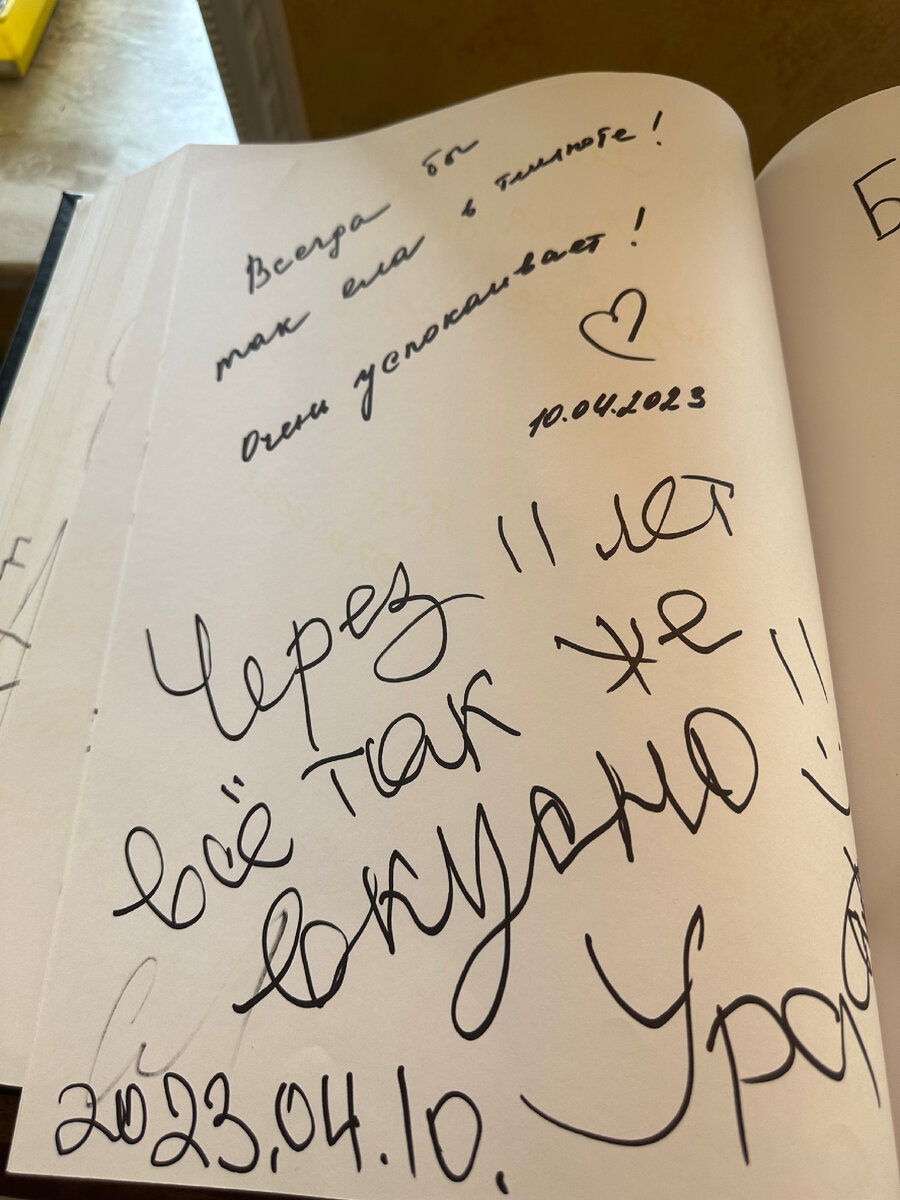 Всегда бы
так ела в темноте!
Очень успокаивает!
10.04.2023
Через 11 лет
всё так же
вкусно!!
2023.04.10.
Б